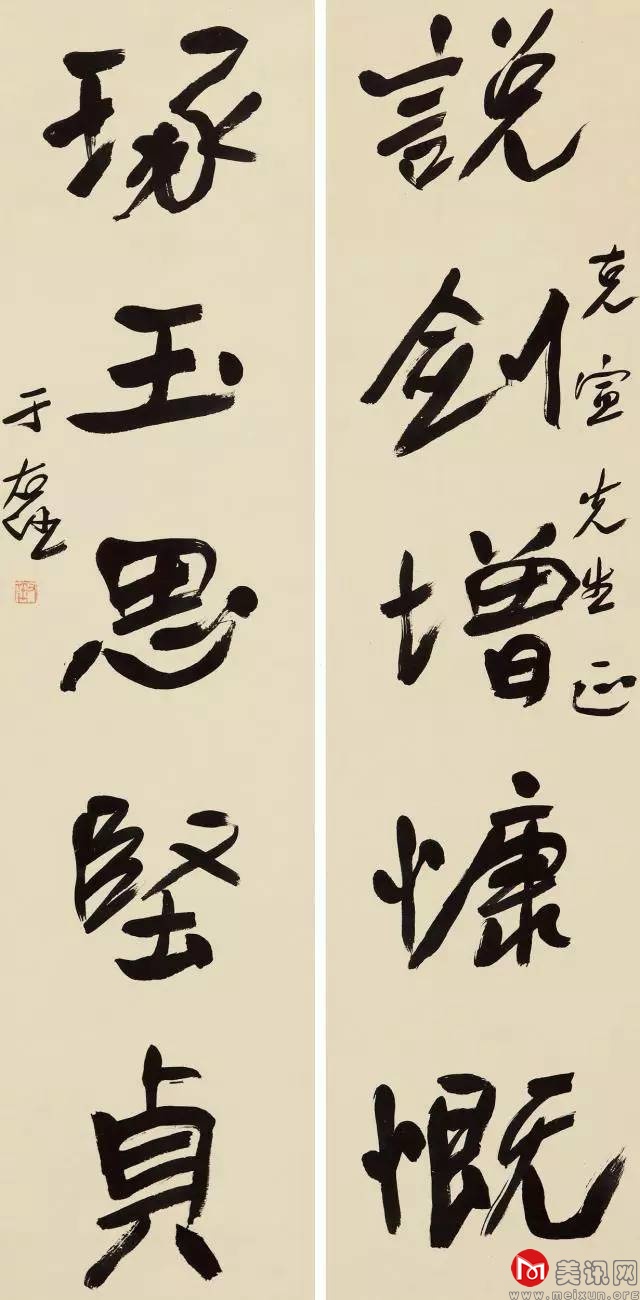 說劍增慷慨
克宣先生正
琢玉思堅貞
于右任
美讯网
www.meixun.org